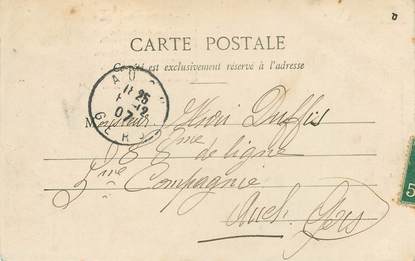 CARTE POSTALE
Ce côté est exclusivement réservé à l'adresse
AUCH
11 25
12
07
GERS
Monsieur Henri Duffis
88ème de ligne
5me Compagnie
Auch. Gers
5